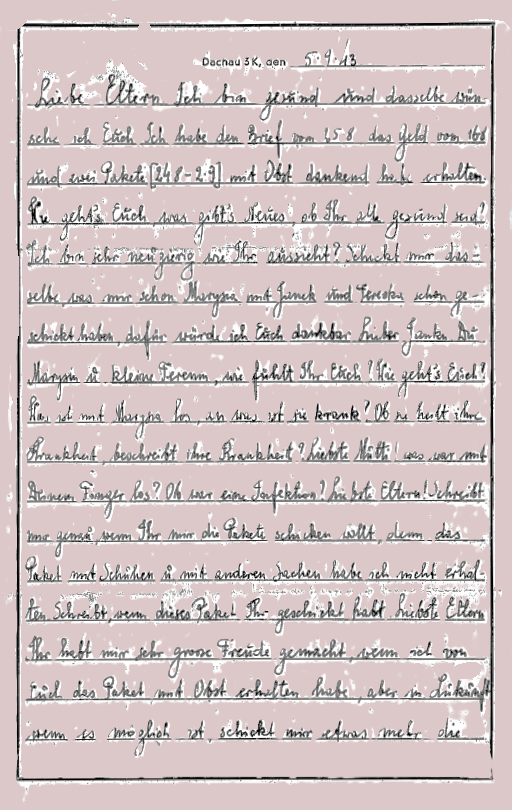 Dachau 3K, den 5.9.43
Liebe Eltern Ich bin gesund und dasselbe wün-
sche ich Euch Ich habe den Brief vom 25 8 das Geld vom 168
und zwei Pakete [248-2.9] mit Obst dankend habe erhalten.
Wie geht's Euch was gibt's Neues, ob Ihr alle gesund seid?
Ich bin sehr neugierig wie Ihr aussieht? Schickt mir das-
selbe, was mir schon Marysia mit Janek und schon ge-
schickt haben, dafür würde ich Euch dankbar Lieber Janku Du
Marysiu u kleine, wie fühlt Ihr Euch? Wie geht's Euch?
Was ist mit Marysia los, an was ist sie krank? Ob sie heilt ihre
Krankheit, beschreibt ihre Krankheit? Liebste Mutti! was war mit
Deinem Finger los? Ob war eine Infektion? Liebste Eltern! Schreibt
mir genau, wenn Ihr mir die Pakete schicken wollt, denn das
Paket mit Schuhen u mit anderen Sachen habe ich nicht erhal-
ten Schreibt, wenn dieses Paket Ihr geschickt habt Liebste Eltern
Ihr habt mir sehr grosse Freude gemacht, wenn ich von
Euch das Paket mit Obst erhalten habe, aber in Zukunft
wenn es möglich ist, schickt mir etwas mehr die